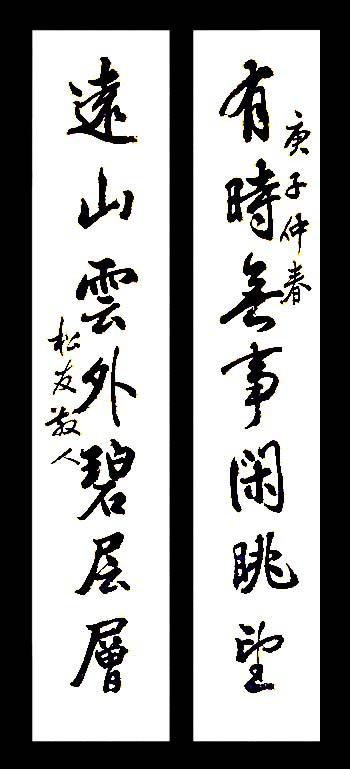 有時無事閑眺望
庚子仲春
遠山雲外碧层層
松友散人